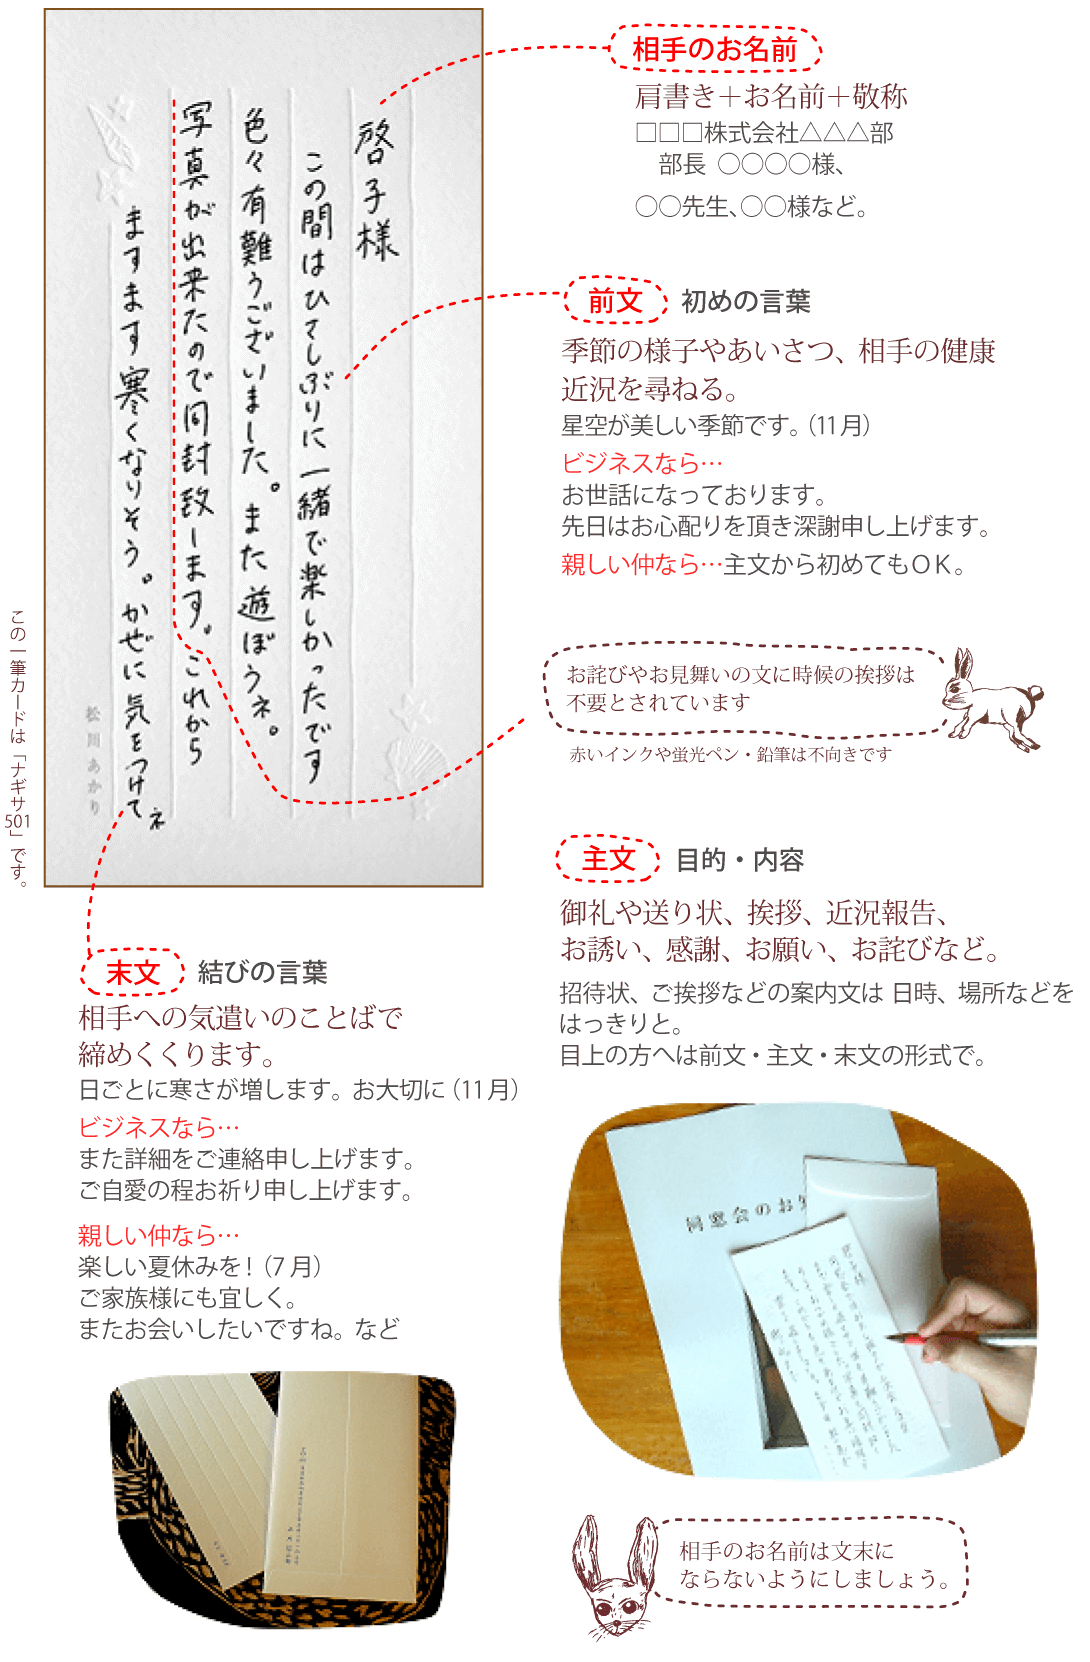 相手のお名前
肩書き＋お名前＋敬称
□□□株式会社△△△部
部長 〇〇〇〇様、
〇〇先生、〇〇様など。
啓子様
この間はひさしぶりに一緒で楽しかったです
色々有難うございました。また遊ぼうネ。
写真が出来たので同封致します。これから
ますます寒くなりそう。かぜに気をつけてネ
松川あかり
この一筆カードは「ナギサ501」です。
前文 初めの言葉
季節の様子やあいさつ、相手の健康
近況を尋ねる。
星空が美しい季節です。（11月）
ビジネスなら…
お世話になっております。
先日はお心配りを頂き深謝申し上げます。
親しい仲なら…主文から初めてもＯＫ。
お詫びやお見舞いの文に時候の挨拶は
不要とされています
赤いインクや蛍光ペン・鉛筆は不向きです
主文 目的・内容
御礼や送り状、挨拶、近況報告、
お誘い、感謝、お願い、お詫びなど。
招待状、ご挨拶などの案内文は 日時、場所などを
はっきりと。
目上の方へは前文・主文・末文の形式で。
末文 結びの言葉
相手への気遣いのことばで
締めくくります。
日ごとに寒さが増します。お大切に（11月）
ビジネスなら…
また詳細をご連絡申し上げます。
ご自愛の程お祈り申し上げます。
親しい仲なら…
楽しい夏休みを！（7月）
ご家族様にも宜しく。
またお会いしたいですね。など
同窓会のお
相手のお名前は文末に
ならないようにしましょう。